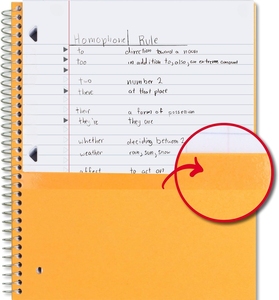 Homophone Rule
to direction toward a noun
too in addition to, also, an extreme
two number 2
there at that place
their a form of possession
they're they are
whether deciding between 2
weather rain, sun, snow
affect to act on